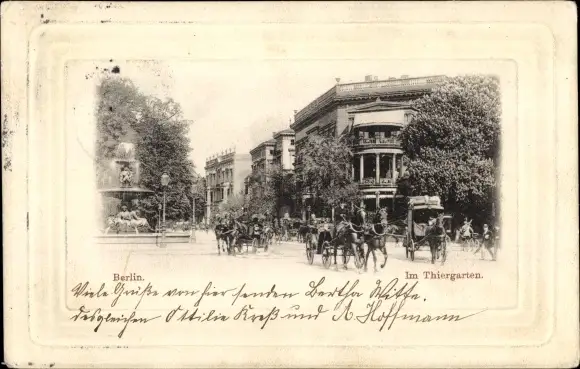 Berlin. Im Thiergarten.
Viele Grüße von hier senden Bertha Witte.
desgleichen Ottilie Kreß und A. Hoffmann